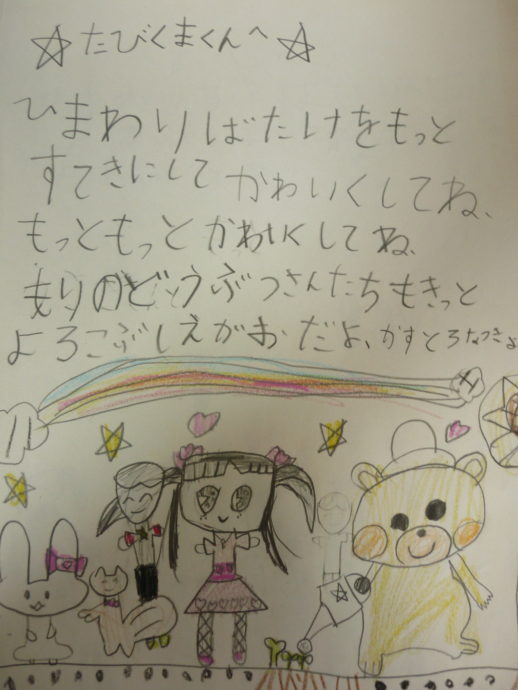 ☆たびくまくんへ☆
ひまわりばたけをもっと
すてきにして かわいくしてね、
もっともっと かわいくしてね、
もりのどうぶつさんたちもきっと
よろこぶしえがお、だよ、かすとろなつきよ